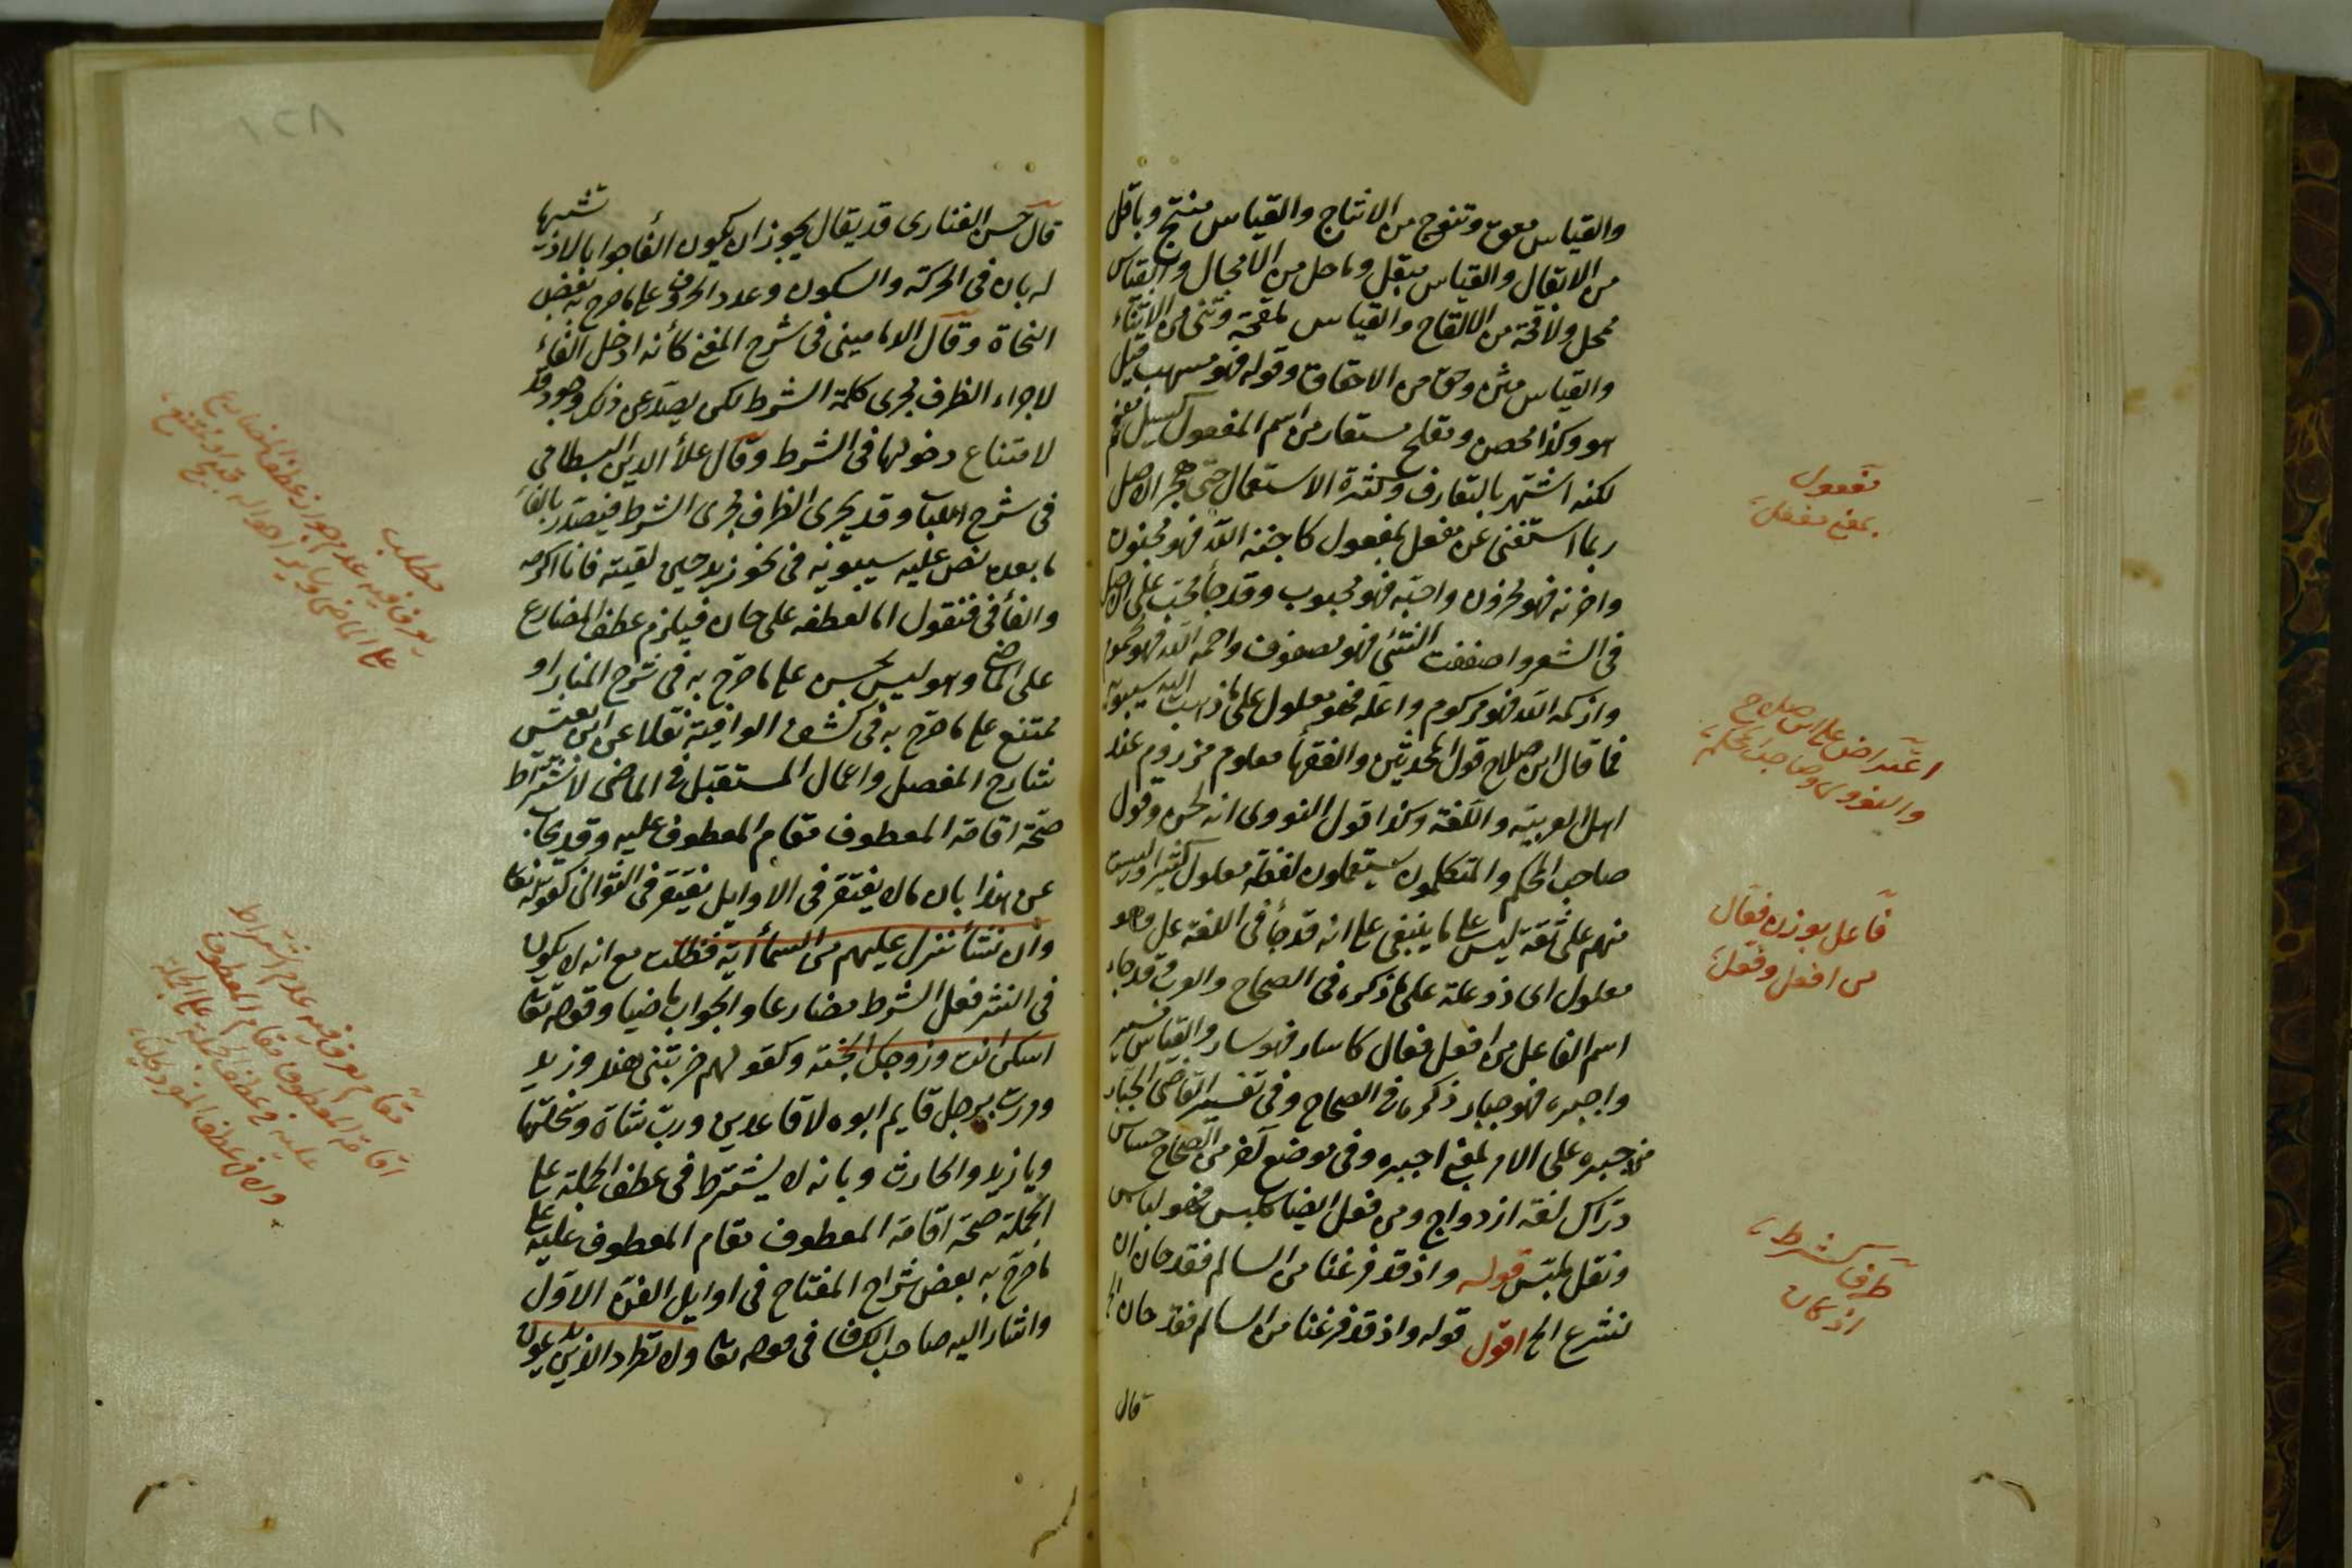 والقياس معق ونتوج من الانتاج والقياس منتج وباقل
من الابقال والقياس مبقل وماحل من الامحال والقياس
ممحل ولاقحة من الالقاح والقياس ملقحة وثنى من الاثناء
والقياس مثن وحق من الاحقاق وقوله فهو مسهب قيل
هو وكذا محصن وملفح مستعار من اسم المفعول كسيل مفعم
لكنه اشتهر بالتعارف وكثرة الاستعمال حتى هجر الاصل
ربما استغنى عن مفعل بمفعول كاجنه الله فهو مجنون
واحزنه فهو محزون واحبه فهو محبوب وقد جأ محب على الاصل
في الشعر واضعفت الشئ فهو مضعوف واحمه الله فهو محموم
وازكمه الله فهو مزكوم واعله فهو معلول على ما ذهب اليه سيبويه
فما قال ابن صلاح قول المحدثين والفقهأ معلوم مرذوم عند
اهل العربية واللغة وكذا قول النووى انه لحن وقول
صاحب المحكم والمتكلمون يستعملون لفظة معلول كثيرا ولست
منهم على ثقة ليس على ما ينبغى على انه قد جأ في اللغة عل وهو
معلول اى ذو علة على ما ذكره في الصحاح والعرب قد جاء
اسم الفاعل من افعل فعال كاسار فهو سار والقياس مسير
واجبره فهو جبار ذكرهما في الصحاح وفي تفسير القاضى الجبار
من جبره على الامر بمعنى اجبره وفي موضع آخر من الصحاح حساس
درّاك لغة ازدواج ومن فعل ايضا كلبس فهو لباس
ونقل بلبّس قوله واذ قد فرغنا من السالم فقد حان ان
نشرع الخ اقول قوله واذ قد فرغنا من السالم فقد حان الخ
قال
مفعول
بمعنى مفعل
اعتراض على ابن صلاح
والنووى وصاحب المحكم
فاعل بوزن فعّال
من افعل وفعل
ظرف كشرط
اذ كان
١٢٨
قال حسن الفنارى قد يقال يجوز ان يكون الفأ جوابا لاذ تشبيها
له بان في الحركة والسكون وعدد الحروف على ما صرح به بعض
النحاة وقال الدمامينى في شرح المغنى كأنه ادخل الفاء
لاجراء الظرف مجرى كلمة الشرط لكن يصد عن ذلك وجود قد
لامتناع دخولها في الشرط وقال علأ الدين البسطامى
في شرح اللباب وقد يجرى الظرف مجرى الشرط فيتصدر بالفأ
ما بعده نص عليه سيبويه في نحو زيد حين لقيته فانا اكرمه
والفأ في فنقول اما لعطفه على حان فيلزم عطف المضارع
على الماضى وهو ليس بحسن على ما صرح به في شرح المنار او
ممتنع على ما صرح به في كشف الوافية نقلا عن ابن يعيش
شارح المفصل واعمال المستقبل في الماضى لاشتراط
صحة اقامة المعطوف مقام المعطوف عليه وقد يجاب
عن هذا بان ما لا يغتفر في الاوايل يغتفر في الثوانى كقوله تعا
وان نشأ ننزل عليهم من السمأ آية فظلت مع انه لا يكون
في النثر فعل الشرط مضارعا والجواب ماضيا وقوله تعا
اسكن انت وزوجك الجنة وكقولهم ضربتنى هند وزيد
ومررت برجل قايم ابوه لا قاعدين ورب شاة وسخلتها
ويا زيد والحارث وبانه لا يشترط في عطف الجملة على
الجملة صحة اقامة المعطوف مقام المعطوف عليه على
ما صرح به بعض شراح المفتاح في اوايل الفن الاول
واشار اليه صاحب الكشاف في قوله تعا ولا تطرد الذين يدعون
مطلب
يعرف فيه عدم جواز عطف المضارع
على الماضى
مقام يعرف فيه عدم اشتراط
اقامة المعطوف مقام المعطوف
عليه في عطف الجملة على الجملة